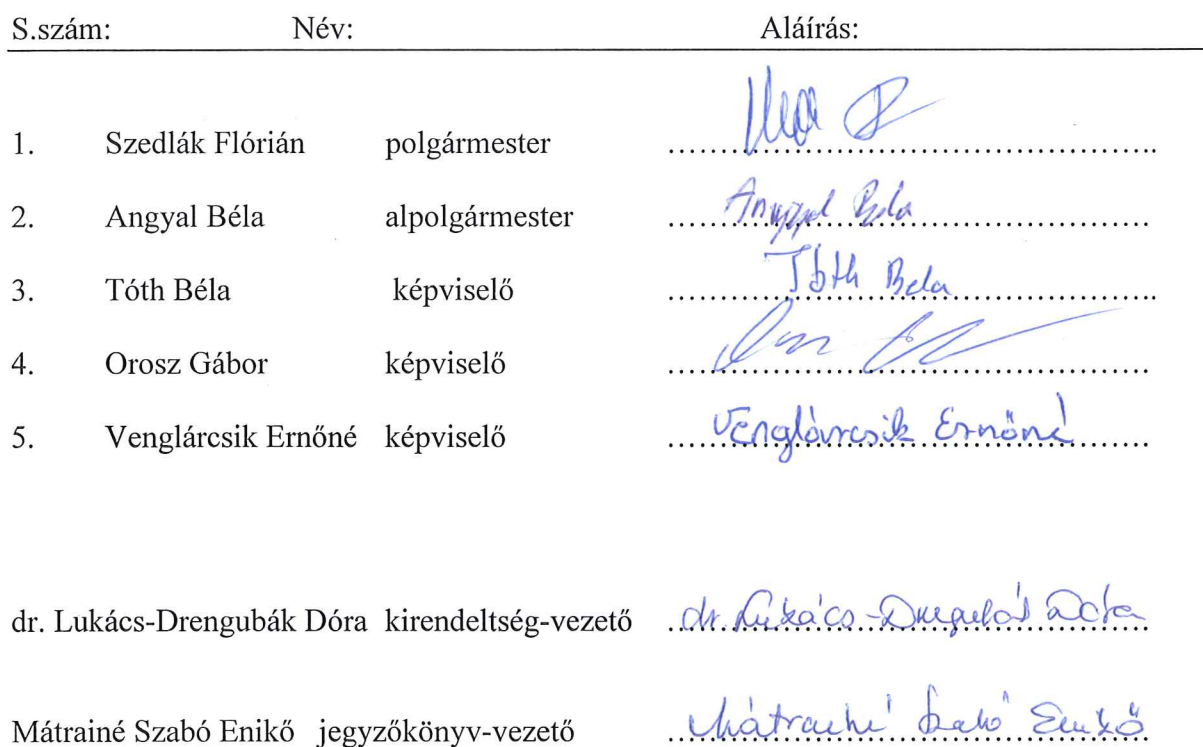 S.szám: Név: Aláírás:
1. Szedlák Flórián polgármester ........................................
2. Angyal Béla alpolgármester Angyal Béla
3. Tóth Béla képviselő Tóth Bela
4. Orosz Gábor képviselő ........................................
5. Venglárcsik Ernőné képviselő Venglárcsik Ernőné
dr. Lukács-Drengubák Dóra kirendeltség-vezető dr. Lukács-Drengubák Dóra
Mátrainé Szabó Enikő jegyzőkönyv-vezető Mátrainé Szabó Enikő